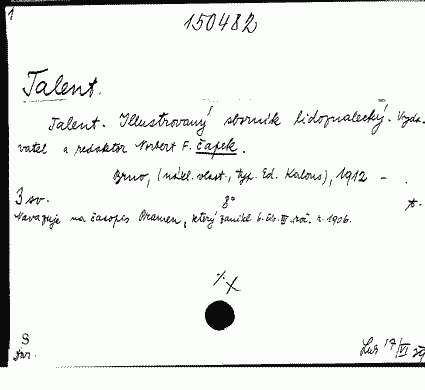 1
150482
Talent.
Talent. Illustrovaný sborník lidoznalecký. Vyda-
vatel a redaktor Norbert F. Čapek.
Brno, (nákl. vlast., typ. Ed. Kalous), 1912 - .
3 sv. 8°
Navazuje na časopis Pramen, který zanikl 6. čís. III. roč. r. 1906.
S